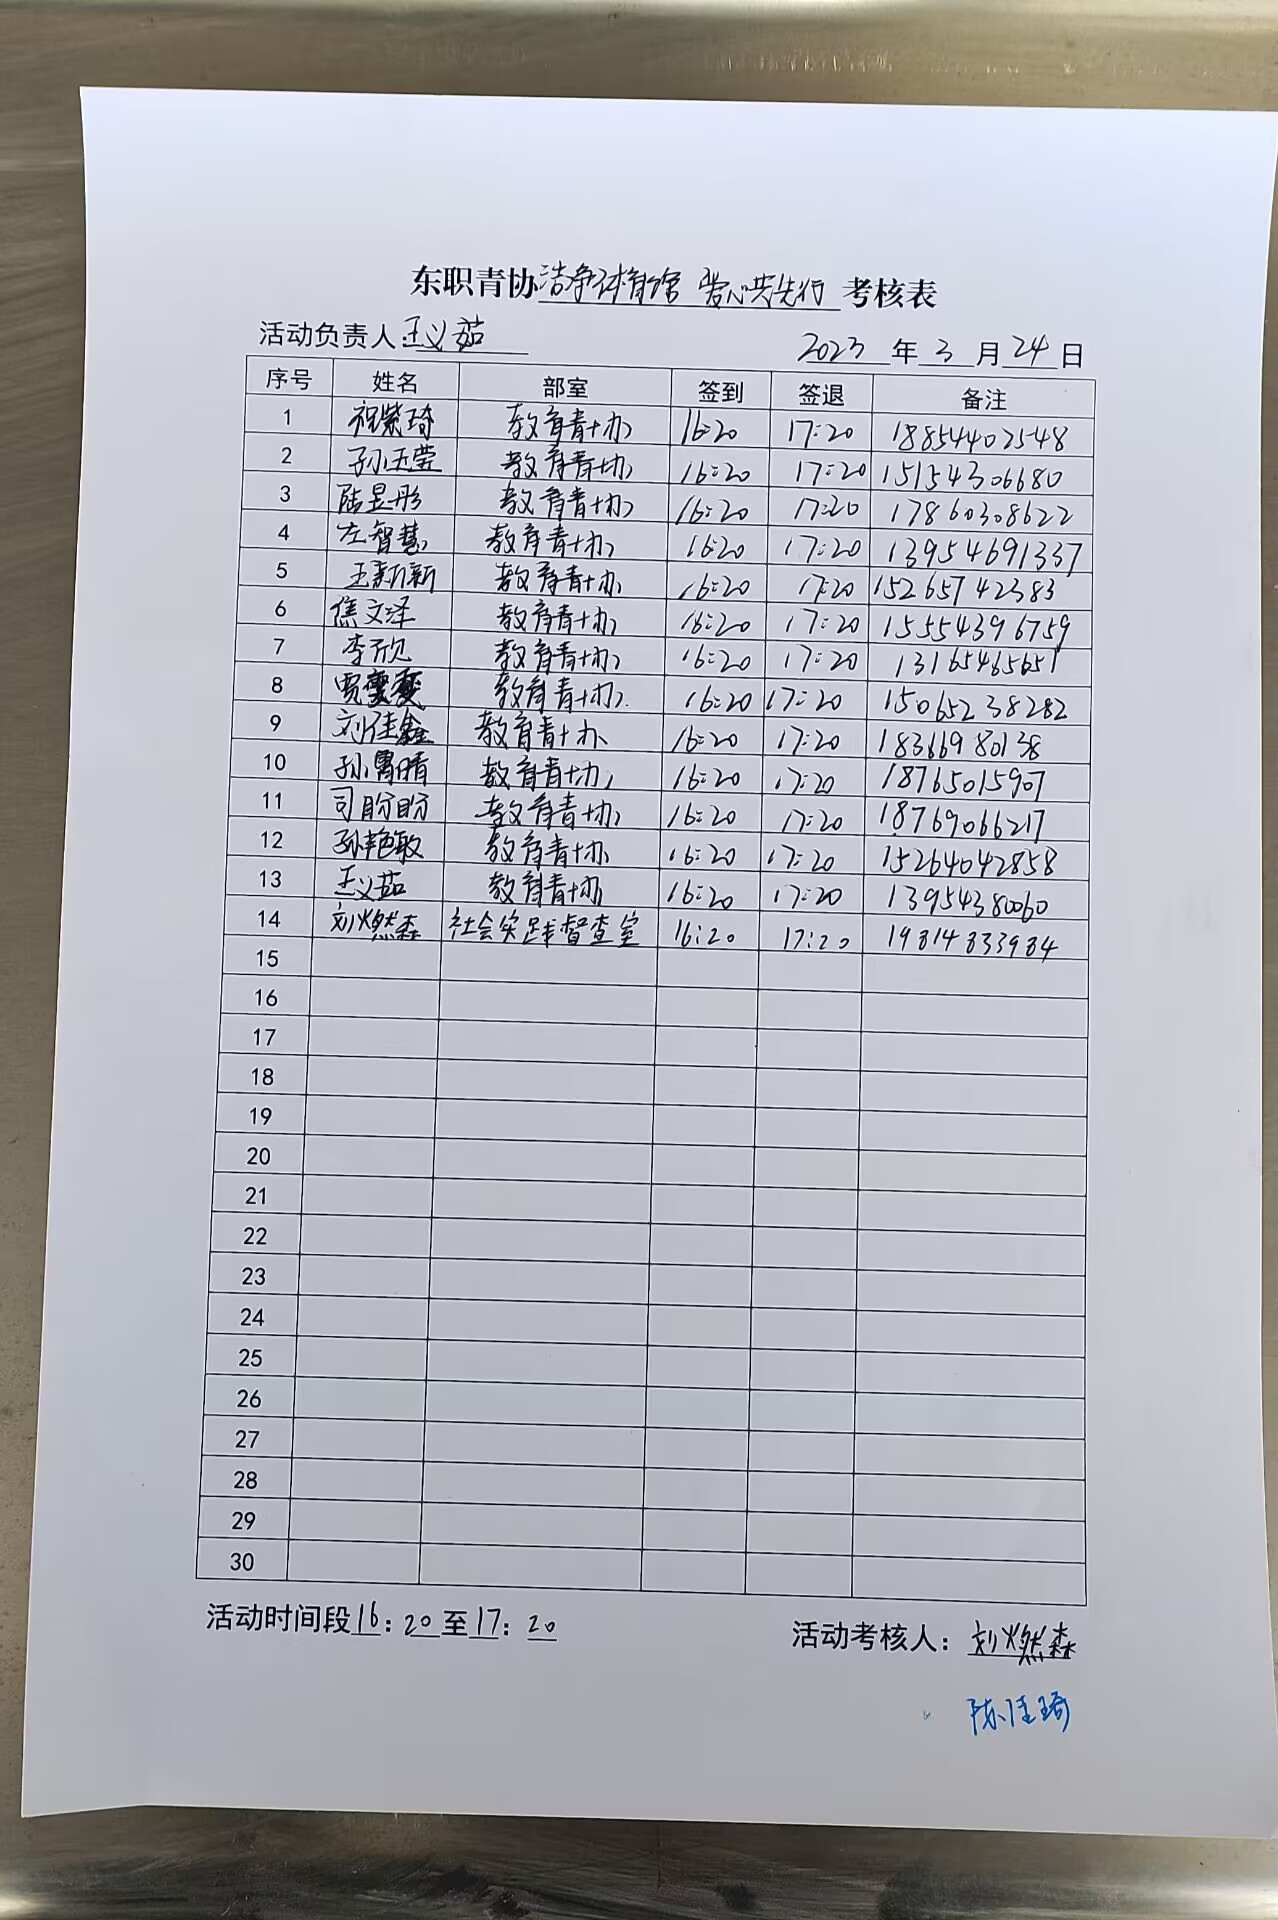 东职青协洁净体育馆 爱心共先行 考核表
活动负责人:王义茹 2023 年 3 月 24 日
序号 姓名 部室 签到 签退 备注
1 祝紫琦 教育青协 16:20 17:20 18854402548
2 孙玉莹 教育青协 16:20 17:20 15154306680
3 陆昱彤 教育青协 16:20 17:20 17860308622
4 左智慧 教育青协 16:20 17:20 13954691337
5 王新新 教育青协 16:20 17:20 15265742383
6 焦文泽 教育青协 16:20 17:20 15554396759
7 李欣 教育青协 16:20 17:20 13165465651
8 贾雯 教育青协 16:20 17:20 15065238282
9 刘佳鑫 教育青协 16:20 17:20 18366980138
10 孙胃晴 教育青协 16:20 17:20 18765015907
11 司盼盼 教育青协 16:20 17:20 18769066217
12 孙艳敏 教育青协 16:20 17:20 15264042858
13 王义茹 教育青协 16:20 17:20 13954380060
14 刘燃森 社会实践督查室 16:20 17:20 19814833984
15
16
17
18
19
20
21
22
23
24
25
26
27
28
29
30
活动时间段16:20至17:20 活动考核人:刘燃森
陈佳琦